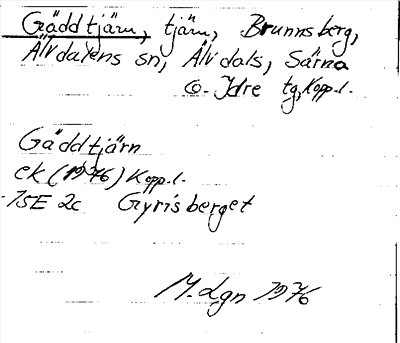 Gäddtjärn, tjärn, Brunnsberg,
Älvdalens sn, Älvdals, Särna
o. Idre tg, Kopp.l.
Gäddtjärn
ek (1976) Kopp.l.
15E 2c Gyrisberget
M.Lgn 1976